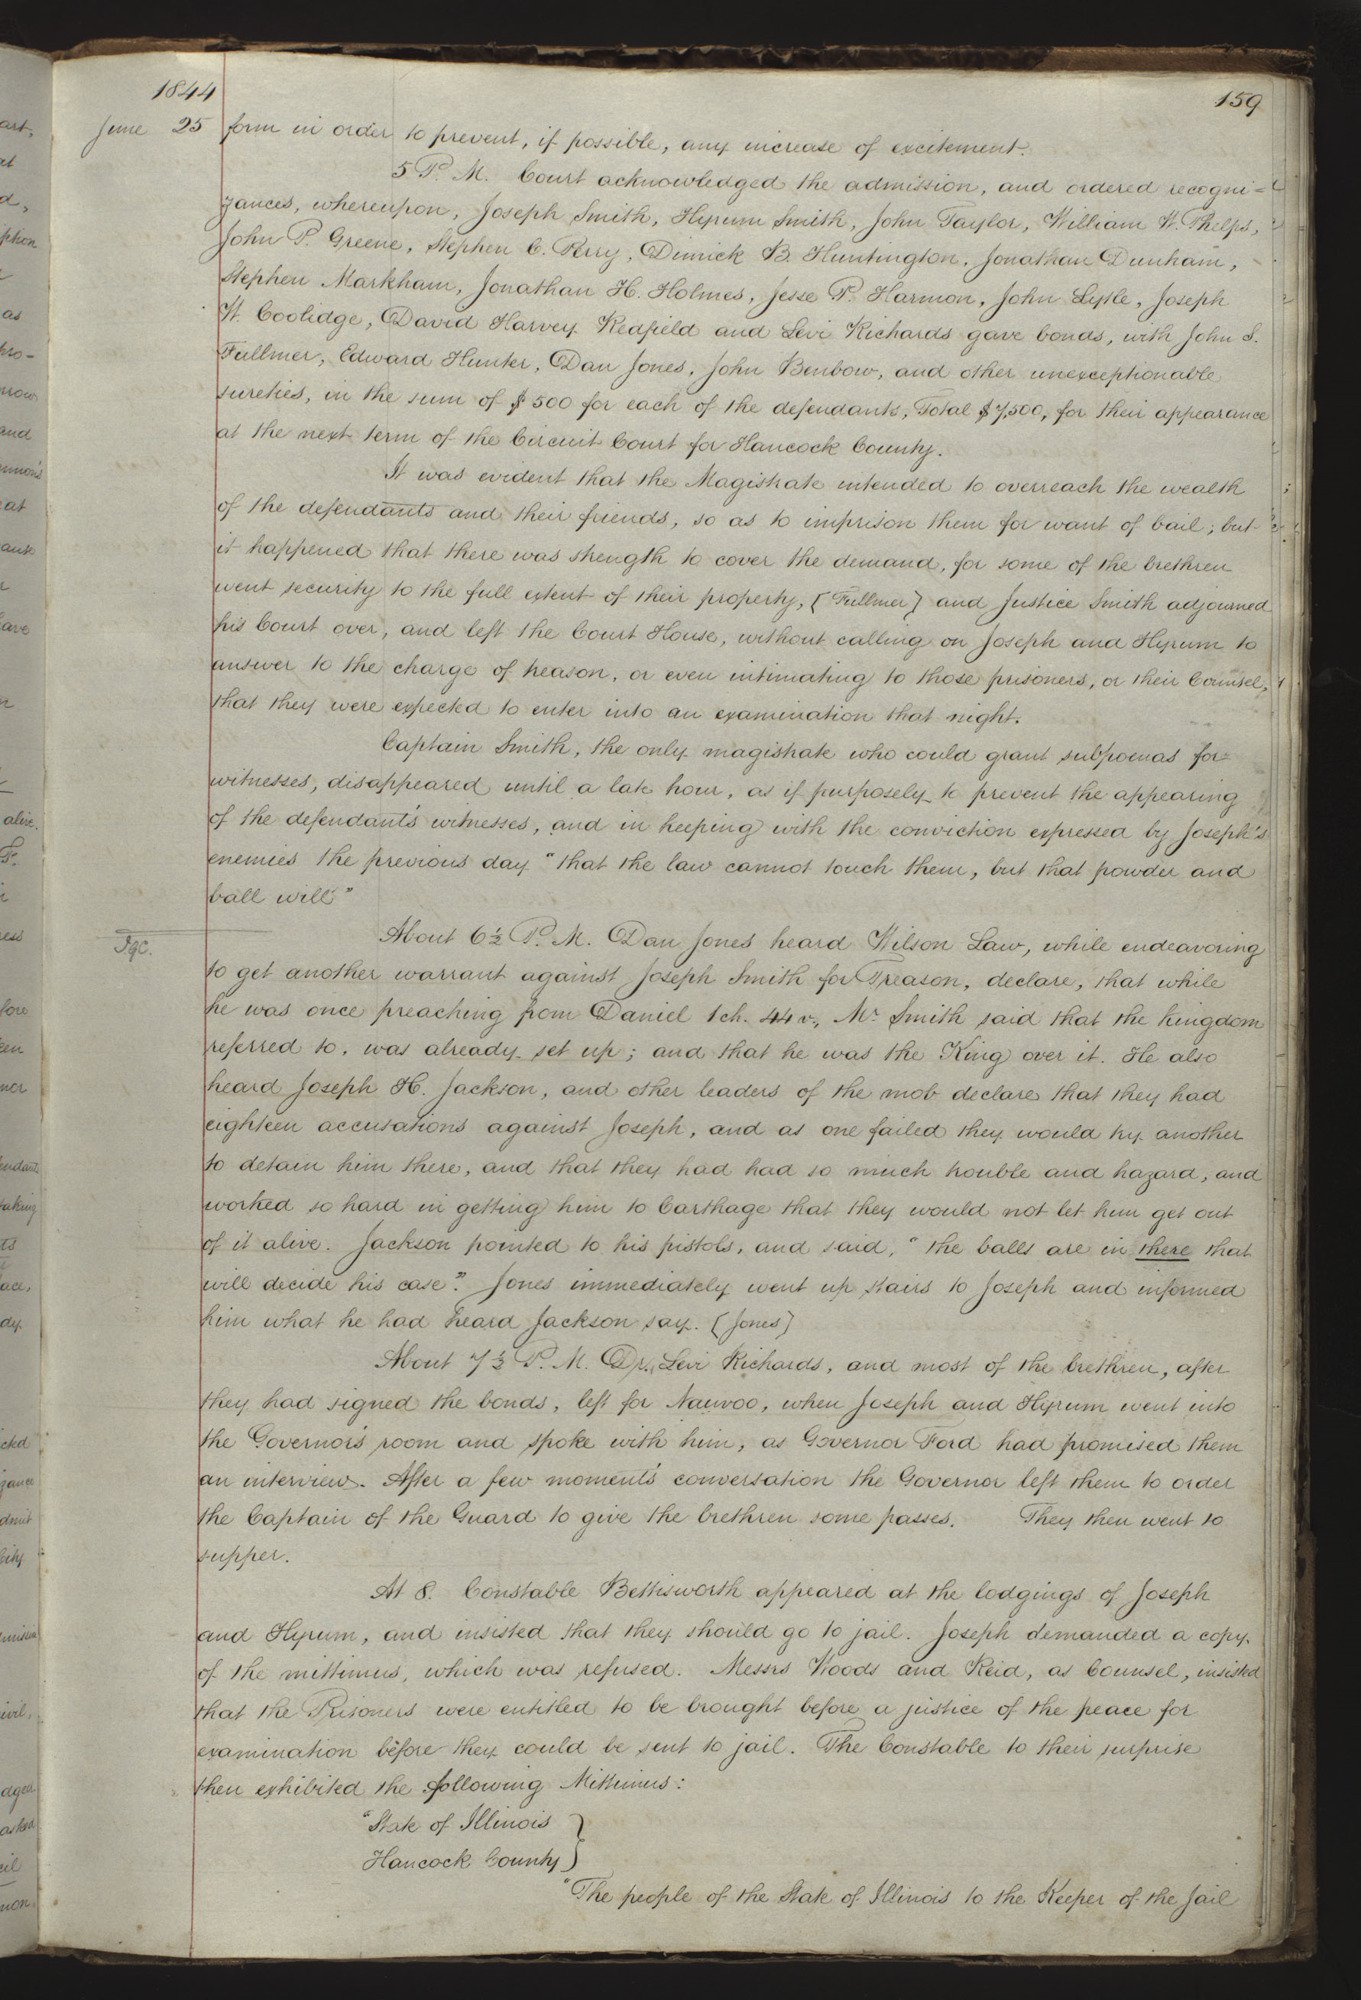 1844
159
June 25 form in order to prevent, if possible, any increase of excitement.
5 P. M. Court acknowledged the admission, and ordered recogni=
zances, whereupon, Joseph Smith, Hyrum Smith, John Taylor, William W. Phelps,
John P. Greene, Stephen C. Perry, Dimick B. Huntington, Jonathan Dunham,
Stephen Markham, Jonathan H. Holmes, Jesse P. Harmon, John Lytle, Joseph
W. Coolidge, David Harvey Redfield and Levi Richards gave bonds, with John S.
Fullmer, Edward Hunter, Dan Jones, John Benbow, and other unexceptionable
sureties, in the sum of $500 for each of the defendants, Total $7,500, for their appearance
at the next term of the Circuit Court for Hancock County.
It was evident that the Magistrate intended to overreach the wealth
of the defendants and their friends, so as to imprison them for want of bail; but
it happened that there was strength to cover the demand, for some of the brethren
went security to the full extent of their property, [Fullmer] and Justice Smith adjourned
his Court over, and left the Court House, without calling on Joseph and Hyrum to
answer to the charge of treason, or even intimating to those prisoners, or their Counsel,
that they were expected to enter into an examination that night.
Captain Smith, the only magistrate who could grant subpoenas for
witnesses, disappeared until a late hour, as if purposely to prevent the appearing
of the defendant's witnesses, and in keeping with the conviction expressed by Joseph's
enemies the previous day "that the law cannot touch them, but that powder and
ball will"
About 6½ P. M. Dan Jones heard Wilson Law, while endeavoring
to get another warrant against Joseph Smith for Treason, declare, that while
he was once preaching from Daniel 1 ch. 44 v., Mr Smith said that the kingdom
referred to, was already set up; and that he was the King over it. He also
heard Joseph H. Jackson, and other leaders of the mob declare that they had
eighteen accusations against Joseph, and as one failed they would try another
to detain him there, and that they had had so much trouble and hazard, and
worked so hard in getting him to Carthage that they would not let him get out
of it alive. Jackson pointed to his pistols, and said, "the balls are in there that
will decide his case". Jones immediately went up stairs to Joseph and informed
him what he had heard Jackson say. [Jones]
About 7½ P. M. Dr. Levi Richards, and most of the brethren, after
they had signed the bonds, left for Nauvoo, when Joseph and Hyrum went into
the Governor's room and spoke with him, as Governor Ford had promised them
an interview. After a few moment's conversation the Governor left them to order
the Captain of the Guard to give the brethren some passes. They then went to
supper.
At 8. Constable Bettisworth appeared at the lodgings of Joseph
and Hyrum, and insisted that they should go to jail. Joseph demanded a copy
of the mittimus, which was refused. Messrs Woods and Reid, as Counsel, insisted
that the Prisoners were entitled to be brought before a justice of the peace for
examination before they could be sent to jail. The Constable to their surprise
then exhibited the following Mittimus:
"State of Illinois }
Hancock County }
"The people of the State of Illinois to the Keeper of the Jail